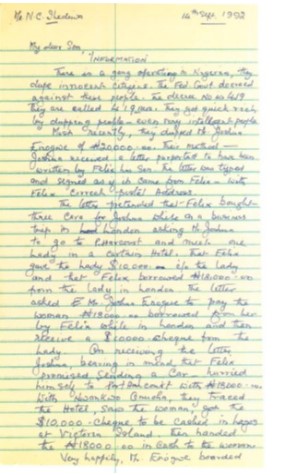 Mr N.C.
14th Sept. 1992
My dear Son,
INFORMATION
There is a gang operating in Nigeria, they
dupe innocent citizens. The Fed. Govt decreed
against these people. The decree No is 419
they are called he 419 men. They get quick rich
by dupping people - even very intelligent people
Most recently, they dupped Mr Joshua
of ₦20000.oo. Their method —
Joshua received a letter purported to have been
written by Felix his Son. The letter was typed
and signed as if it came from Felix - with
Felix Correct postal address.
The letter pretended that Felix bought
three Cars for Joshua while on a business
trip in London asking Mr Joshua
to go to and meet one
lady in a certain Hotel. That Felix
gave the lady $10,000.oo the lady
and that Felix borrowed ₦18000.oo
from the lady in London the letter
asked Mr. Joshua to pay the
woman ₦18000.oo borrowed from her
by Felix while in London and then
receive a $10000 Cheque from the
lady. On receiving the letter
Joshua bearing in mind that Felix
promised sending a Car hurried
himself to Port Harcourt with ₦18000.oo
With they traced
the Hotel, saw the woman, got the
$10,000 Cheque to be cashed in Lagos
at Victoria Island then handed
the ₦18000.oo in Cash to the woman
Very happily, Mr